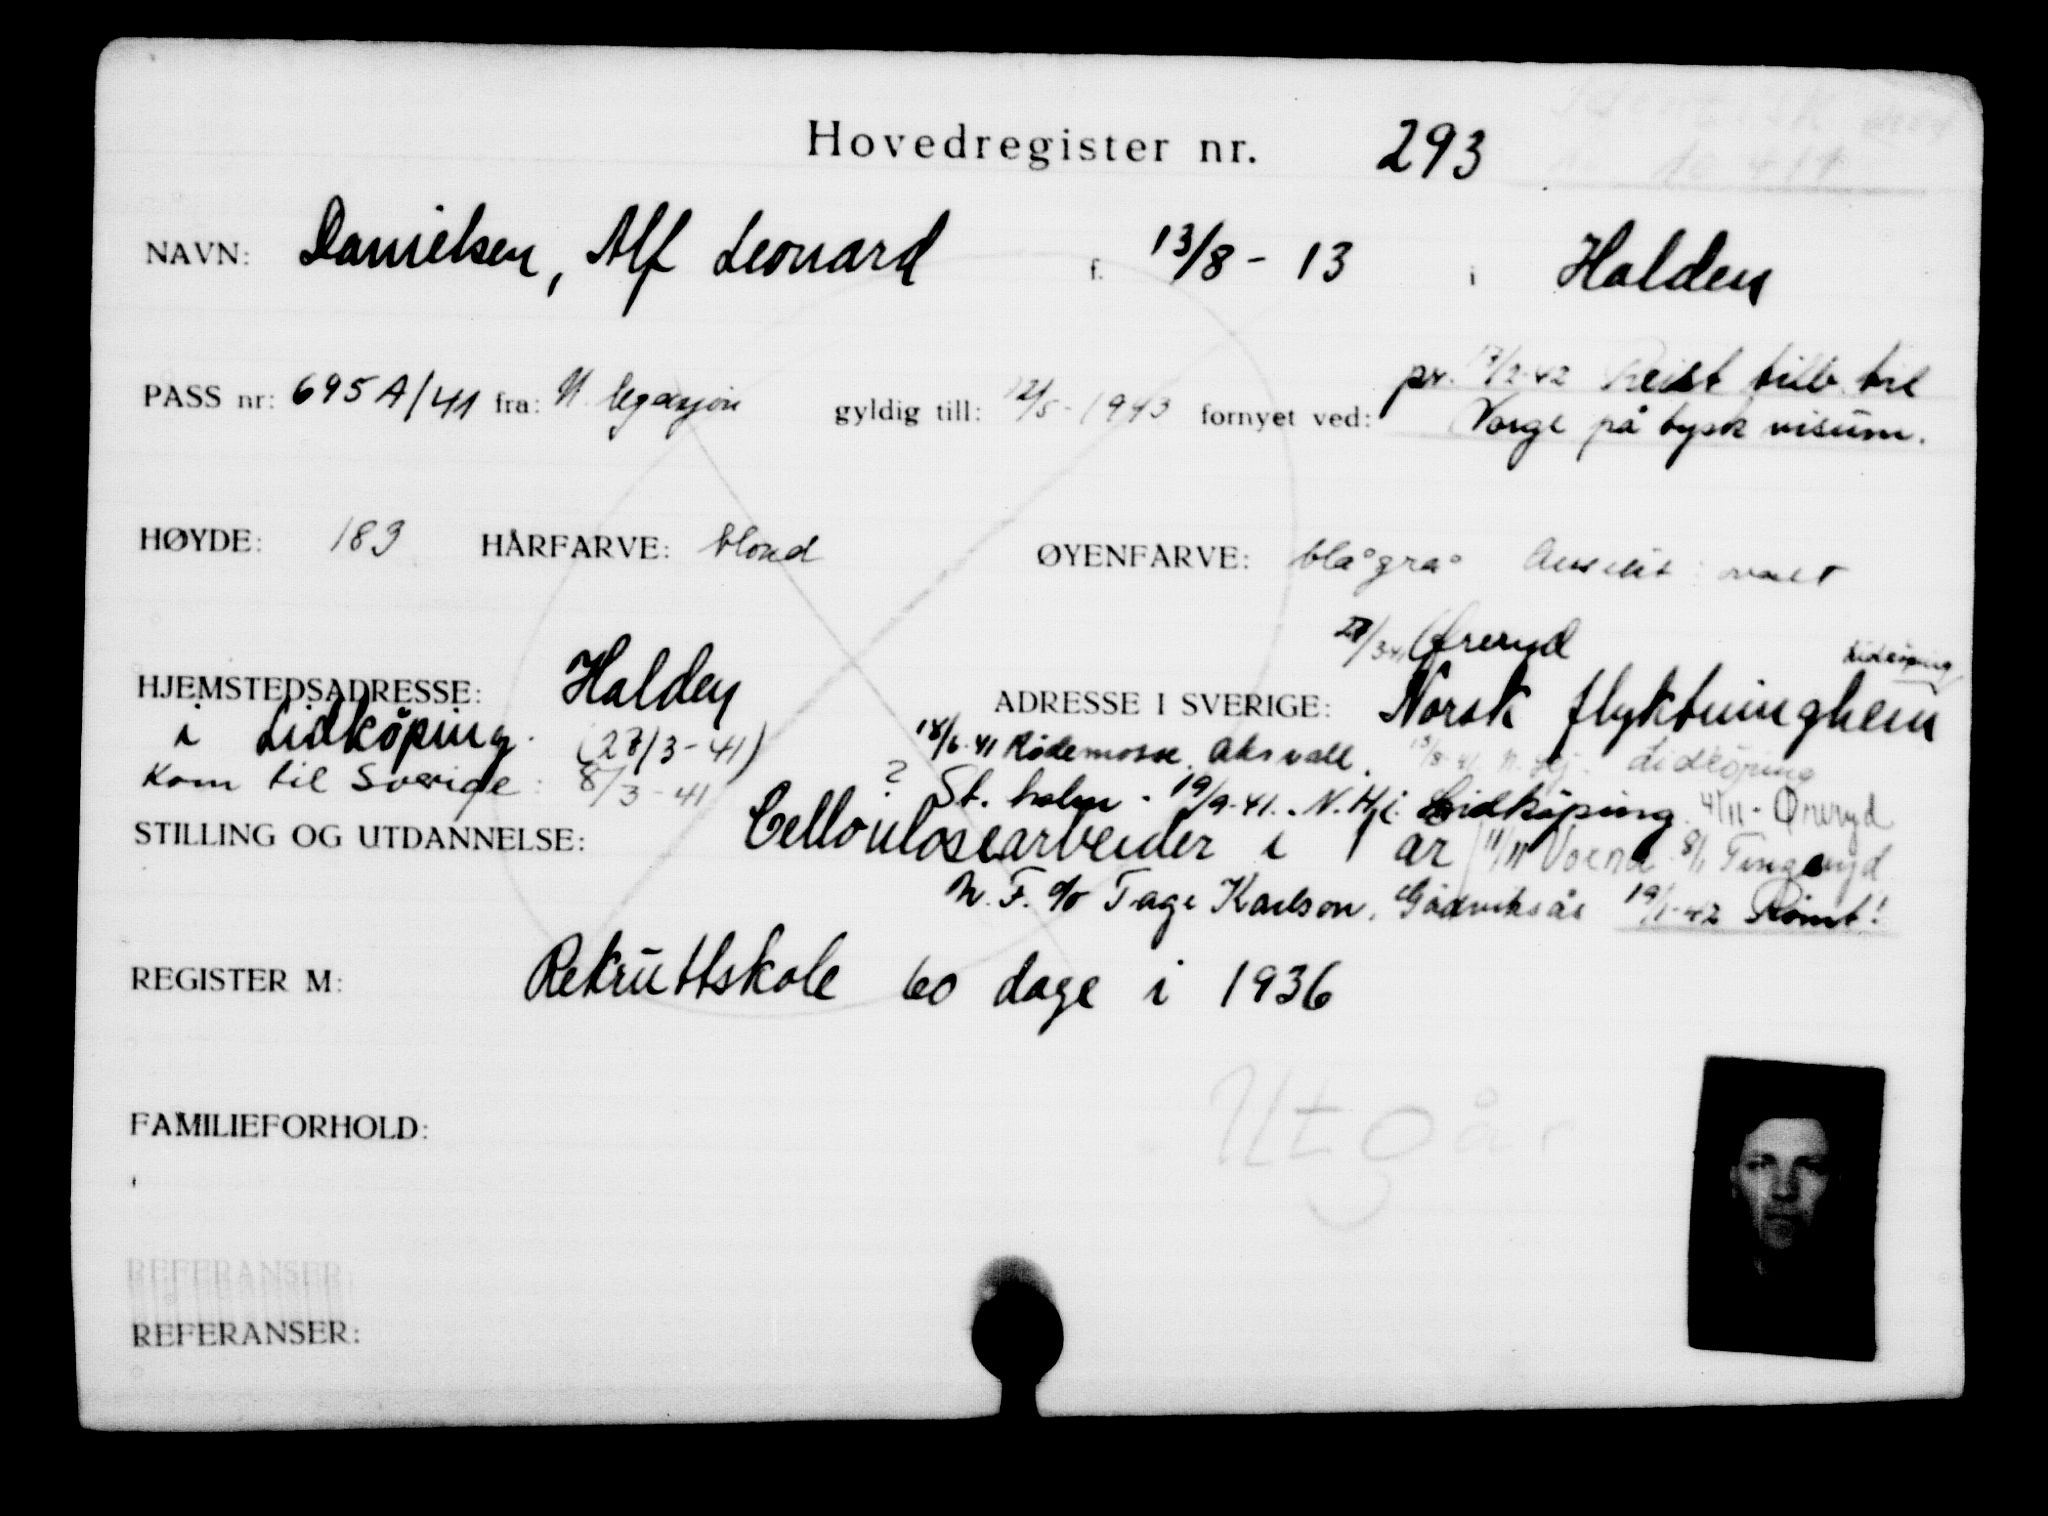 Hovedregister nr. 293
NAVN: Danielsen, Alf Leonard f. 13/8 - 13 i Halden
PASS nr: 695 A/41 fra: N. legasjon gyldig till: 12/5 - 1943 fornyet ved: pr. 17/2-42 Reist tilb. til
Norge på tysk visum.
HØYDE: 183 HÅRFARVE: blond ØYENFARVE: blå grå Ansikt: ovalt
27/3-41 Øreryd
Lidköping
HJEMSTEDSADRESSE: Halden ADRESSE I SVERIGE: Norsk flyktninghem
i Lidköping. (27/3-41) 18/6-41 Rødemosse, Aksvall. Lidköping
Kom til Sverige: 8/3-41 ? St. holm - 19/9-41. N. Hj. Lidköping 4/11 - Øreryd
STILLING OG UTDANNELSE: Celloulosearbeider i 1 år 11/11 Voxna 8/1 Tingsryd
N. F. c/o Tage Karlson, 19/1-42 Rømt!
REGISTER M: Rekruttskole 60 dage i 1936
FAMILIEFORHOLD:
Utgår
REFERANSER:
REFERANSER: